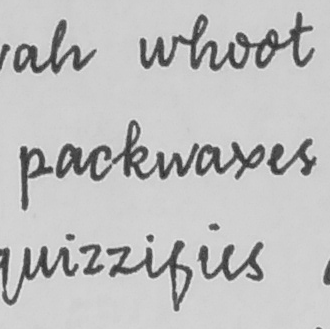 whoot
packwaxes
quizzifies